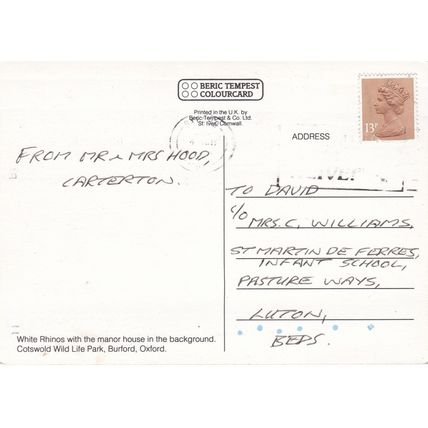 BERIC TEMPEST
COLOURCARD
Printed in the U.K. by
Beric Tempest & Co. Ltd.
St. Ives, Cornwall.
13P
ADDRESS
FROM MR & MRS HOOD,
CARTERTON.
TO DAVID
c/o
MRS. C. WILLIAMS,
ST MARTIN DE FERRES,
INFANT SCHOOL,
PASTURE WAYS,
LUTON,
BEDS.
White Rhinos with the manor house in the background.
Cotswold Wild Life Park, Burford, Oxford.